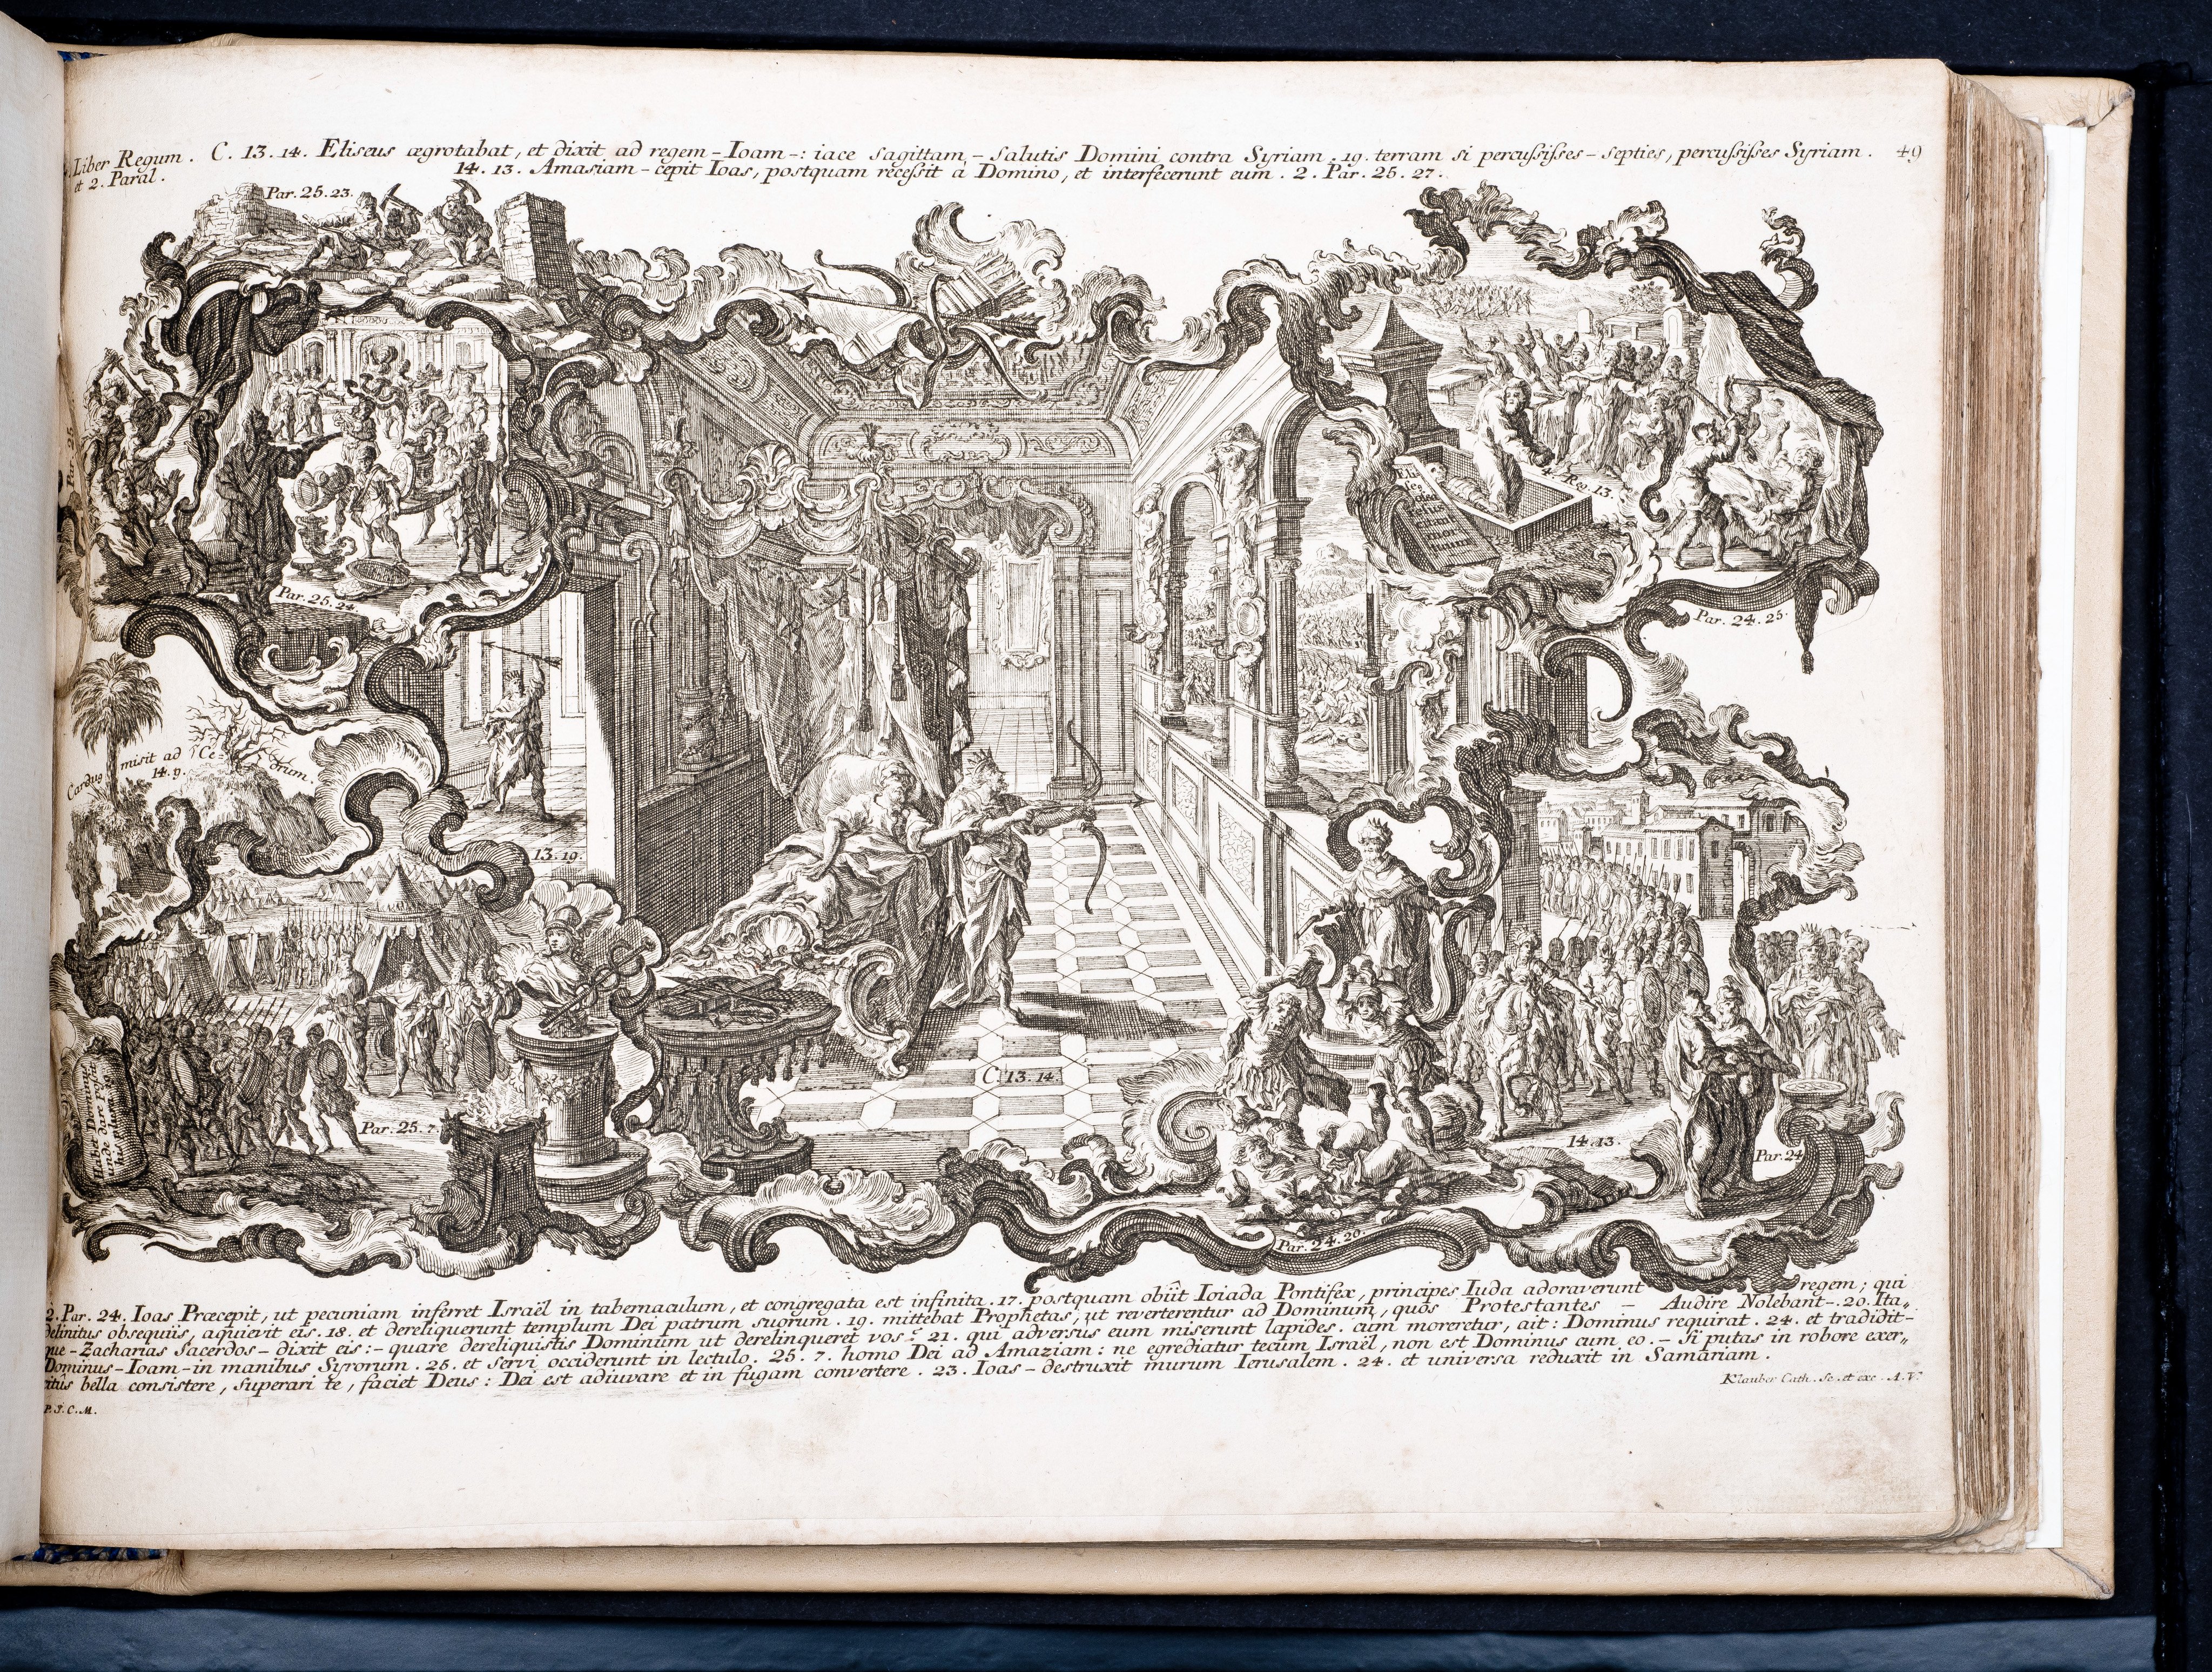 Liber Regum. C. 13. 14. Eliseus ægrotabat, et dixit ad regem - Ioam -: iace sagittam, - salutis Domini contra Syriam. 19. terram si percussisses - septies, percussisses Syriam. 49
et 2. Paral. 14. 13. Amasiam - cepit Ioas, postquam recessit a Domino, et interfecerunt eum. 2. Par. 25. 27.
Par. 25. 23.
Par. 25.
Reg. 13.
Par. 25. 24.
Par. 24. 25.
Cardus misit ad Ce-drum.
14. 9.
13. 19.
C. 13. 14.
Habet Dominus
unde dare possit
Par. 25. 7.
14. 13.
Par. 24
Par. 24. 20.
2. Par. 24. Ioas Præcepit, ut pecuniam inferret Israël in tabernaculum, et congregata est infinita. 17. postquam obiit Ioiada Pontifex, principes Iuda adoraverunt regem; qui
delinitus obsequiis, aquievit eis. 18. et dereliquerunt templum Dei patrum suorum. 19. mittebat Prophetas, ut reverterentur ad Dominum, quos Protestantes - Audire Nolebant -. 20. Ita„
que - Zacharias Sacerdos - dixit eis: - quare dereliquistis Dominum ut derelinqueret vos? 21. qui adversus eum miserunt lapides. cum moreretur, ait: Dominus requirat. 24. et tradidit -
Dominus - Ioam - in manibus Syrorum. 25. et servi occiderunt in lectulo. 25. 7. homo Dei ad Amaziam: ne egrediatur tecum Israël, non est Dominus cum eo. - Si putas in robore exer„
citûs bella consistere, superari te, faciet Deus: Dei est adiuvare et in fugam convertere. 23. Ioas - destruxit murum Ierusalem. 24. et universa reduxit in Samariam.
Klauber Cath. Sc. et exc. A. V.
P. I. C. M.